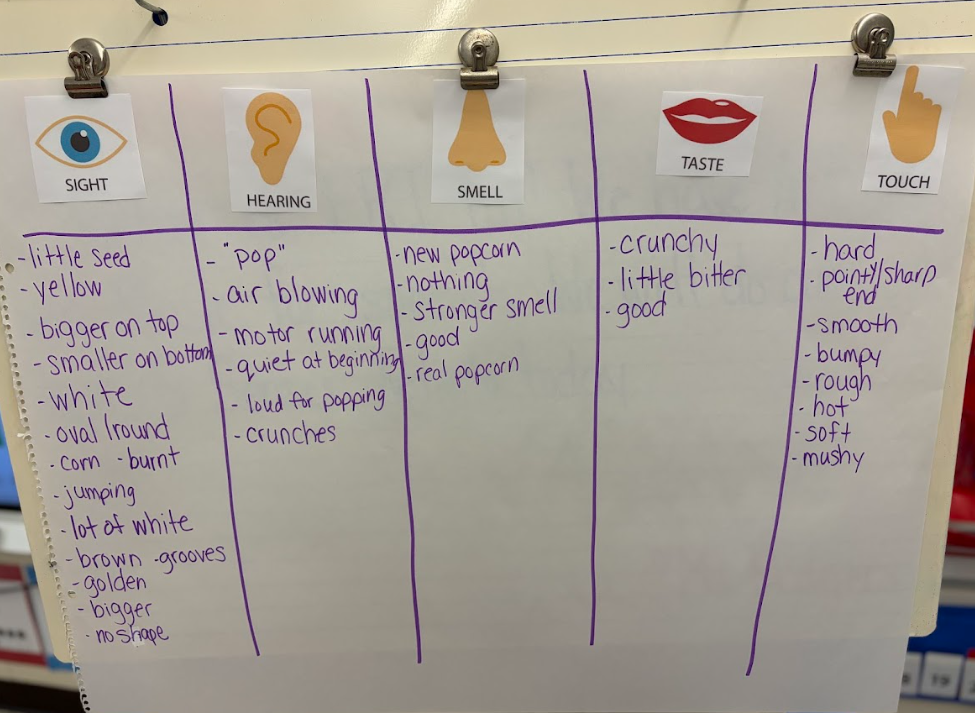 SIGHT
-little seed
-yellow
-bigger on top
-smaller on bottom
-white
-oval/round
-corn -burnt
-jumping
-lot of white
-brown -grooves
-golden
-bigger
-no shape
HEARING
-"pop"
-air blowing
-motor running
-quiet at beginning
-loud for popping
-crunches
SMELL
-new popcorn
-nothing
-stronger smell
-good
-real popcorn
TASTE
-crunchy
-little bitter
-good
TOUCH
-hard
-pointy/sharp
end
-smooth
-bumpy
-rough
-hot
-soft
-mushy
19